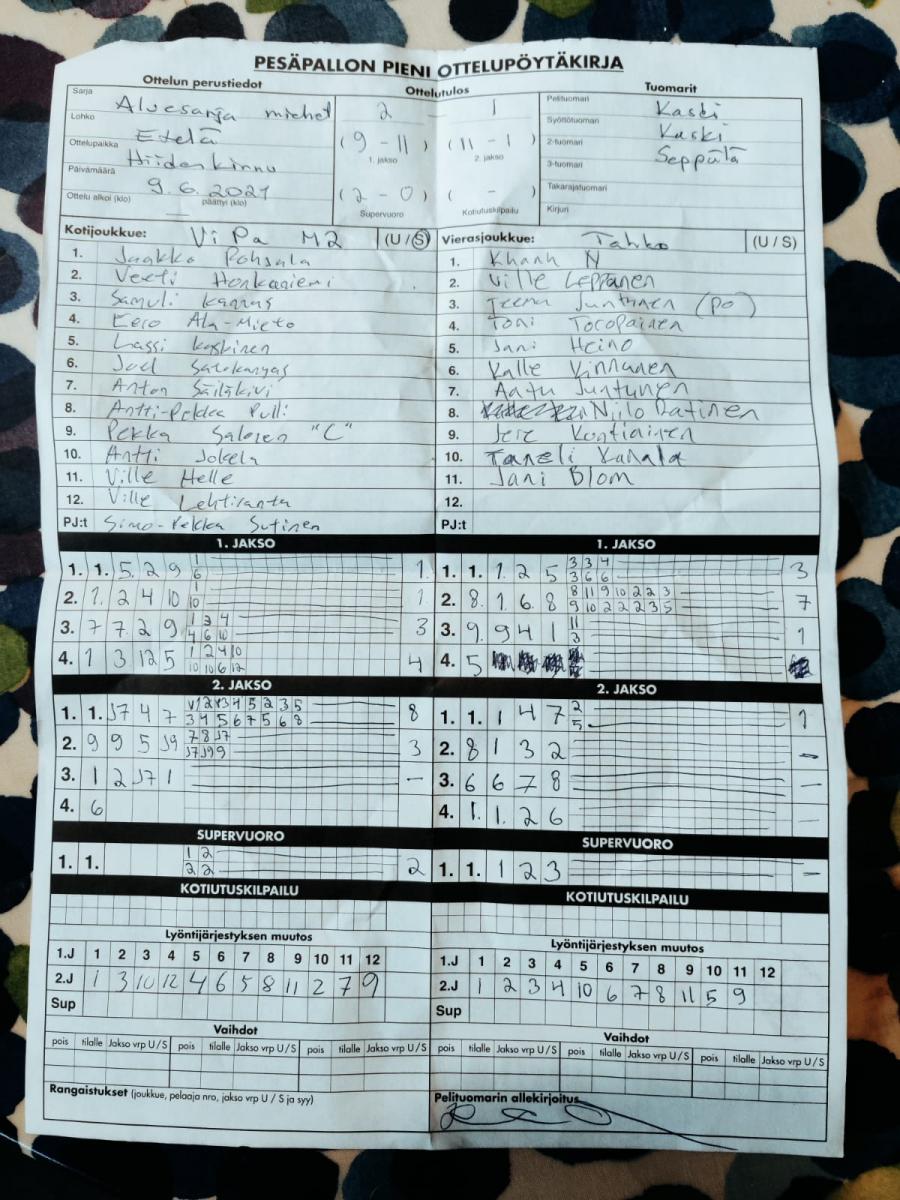 PESÄPALLON PIENI OTTELUPÖYTÄKIRJA
Ottelun perustiedot
Ottelutulos
Tuomarit
Sarja Aluesarja miehet
Lohko Etelä
Ottelupaikka Hiidenkinnu
Päivämäärä 9.6.2021
Ottelu alkoi (klo) päättyi (klo)
2 – 1
(9 – 11) (11 – 1)
1. jakso 2. jakso
(2 – 0) ( – )
Supervuoro Kotiutuskilpailu
Pelituomari Kaski
Syöttötuomari Kaski
2-tuomari Seppälä
3-tuomari
Takarajatuomari
Kirjuri
Kotijoukkue: ViPa M2 (U / S)
1. Jaakko Pohjala
2. Veeti Honkaniemi
3. Samuli Kangas
4. Eero Ala-Mieto
5. Lassi Koskinen
6. Joel Salokangas
7. Anton Säiläkivi
8. Antti-Pekka Pulli
9. Pekka Salosen "C"
10. Antti Jokela
11. Ville Helle
12. Ville Lehtiranta
PJ:t Simo-Pekka Sutinen
Vierasjoukkue: Tahko (U / S)
1. Khanh N
2. Ville Leppänen
3. Teemu Juntunen (po)
4. Toni Toropainen
5. Jani Heino
6. Kalle Kinnunen
7. Antu Juntunen
8. Niilo Ratinen
9. Jere Kontiainen
10. Taneli Kanala
11. Jani Blom
12.
PJ:t
1. JAKSO
1. 1. 5 2 9 1 1
6
2. 1 2 4 10 1 1
10
3. 7 7 2 9 1 3 4 3
4 6 10
4. 1 3 12 5 1 2 4 10 4
10 10 6 12
1. JAKSO
1. 1. 1 2 5 3 3 4 3
3 6 6
2. 8 1 6 8 8 11 9 10 2 2 3 7
9 10 2 2 2 3 5
3. 9 9 4 1 11 1
3
4. 5
2. JAKSO
1. 1. J7 4 7 8
3 4 5 6 7 5 6 8
2. 9 9 5 J9 7 8 J7 3
J7 J9 9
3. 1 2 J7 1 –
4. 6
2. JAKSO
1. 1. 1 4 7 2 1
5
2. 8 1 3 2 –
3. 6 6 7 8 –
4. 1. 1. 2 6 –
SUPERVUORO
1. 1. 1 2 2
2 2
SUPERVUORO
1. 1. 1 2 3 –
KOTIUTUSKILPAILU
KOTIUTUSKILPAILU
Lyöntijärjestyksen muutos
1.J 1 2 3 4 5 6 7 8 9 10 11 12
2.J 1 3 10 12 4 6 5 8 11 2 7 9
Sup
Lyöntijärjestyksen muutos
1.J 1 2 3 4 5 6 7 8 9 10 11 12
2.J 1 2 3 4 10 6 7 8 11 5 9
Sup
Vaihdot
pois tilalle Jakso vrp U / S pois tilalle Jakso vrp U / S pois tilalle Jakso vrp U / S
Vaihdot
pois tilalle Jakso vrp U / S pois tilalle Jakso vrp U / S pois tilalle Jakso vrp U / S
Rangaistukset (joukkue, pelaaja nro, jakso vrp U / S ja syy)
Pelituomarin allekirjoitus